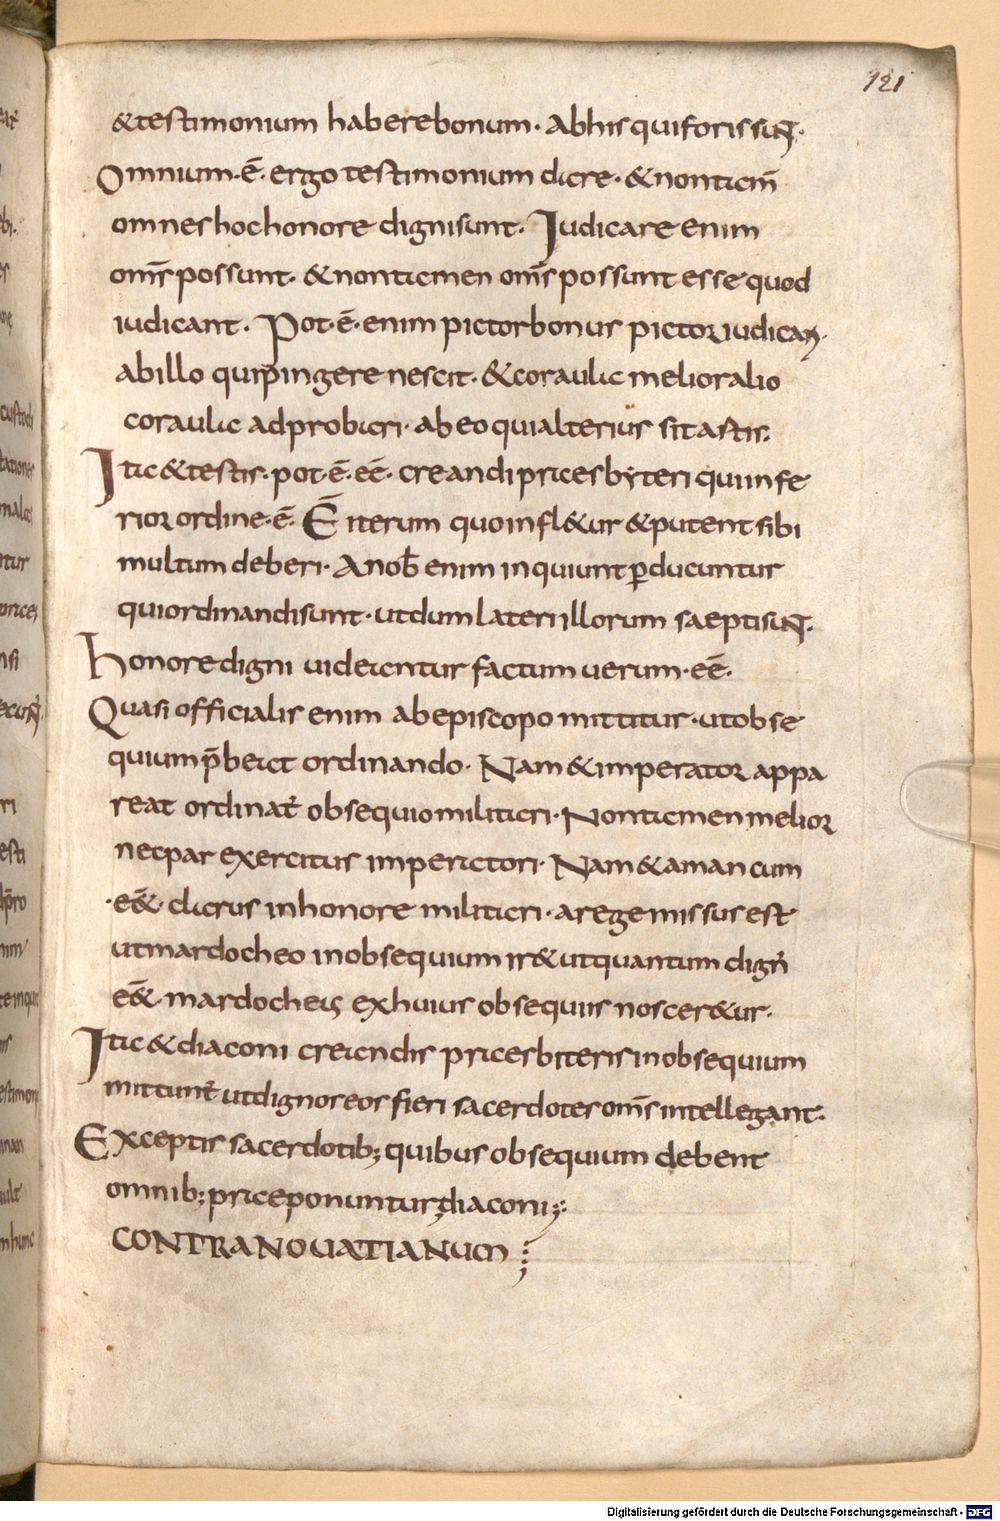 121
& testimonium habere bonum. Ab his qui foris sunt.
Omnium .ē. ergo testimonium dare. & non tam̄
omnes hoc honore digni sunt. Iudicare enim
om̄s possunt. & non tamen om̄s possunt esse quod
iudicant. Pot.ē. enim pictor bonus pictor iudicari.
ab illo qui pingere nescit. & coraula melior alio
coraula adprobari. ab eo qui alterius sit artis.
Ita & testis. pot.ē. eē. creandi praesbyteri qui infe
rior ordine .ē. Ē iterum quo infl&ur & putent sibi
multum deberi. A nob̄ enim inquiunt ꝑducuntur
qui ordinandi sunt. ut dum lateri illorum saepti sunt.
Honore digni uideantur factum uerum .eē.
Quasi officialis enim ab episcopo mittitur. ut obse
quium p̄beat ordinando. Nam & imperator appa
reat ordinat̄ obsequio militari. Non tamen melior
nec par exercitus imperatori. Nam & aman cum
.eē&. clarus in honore militari. a rege missus est
ut mardocheo in obsequium ir& ut quantum dign̄
eē& mardocheus ex huius obsequiis noscer&ur.
Ita & diaconi creandis praesbiteris in obsequium
mittunt̄ ut dignos eos fieri sacerdotes om̄s intellegant.
Exceptis sacerdotib; quibus obsequium debent
omnib; praeponuntur diaconi;
CONTRA NOUATIANUM
Digitalisierung gefördert durch die Deutsche Forschungsgemeinschaft - DFG